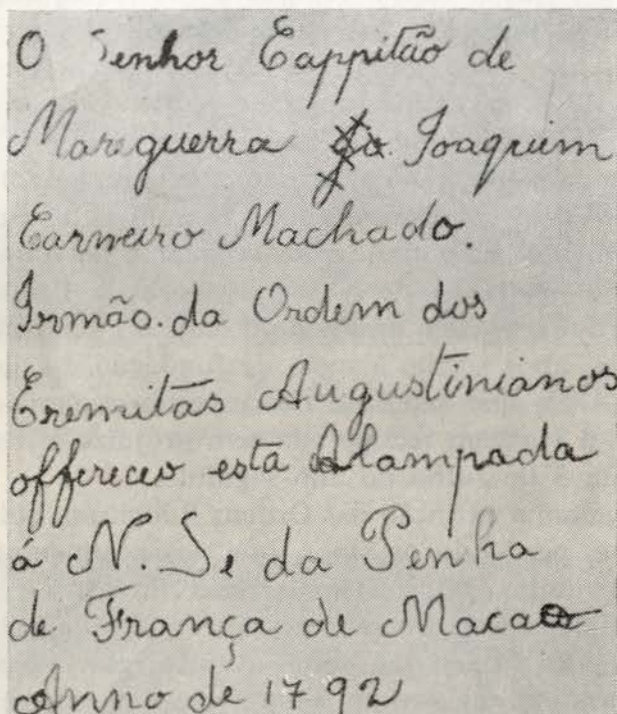 O Senhor Cappitão de
Mareguerra Joaquim
Carneiro Machado.
Irmão da Ordem dos
Eremitas Augustinianos
offereceo esta Alampada
á N. Se da Penha
de França de Macao
Anno de 1792